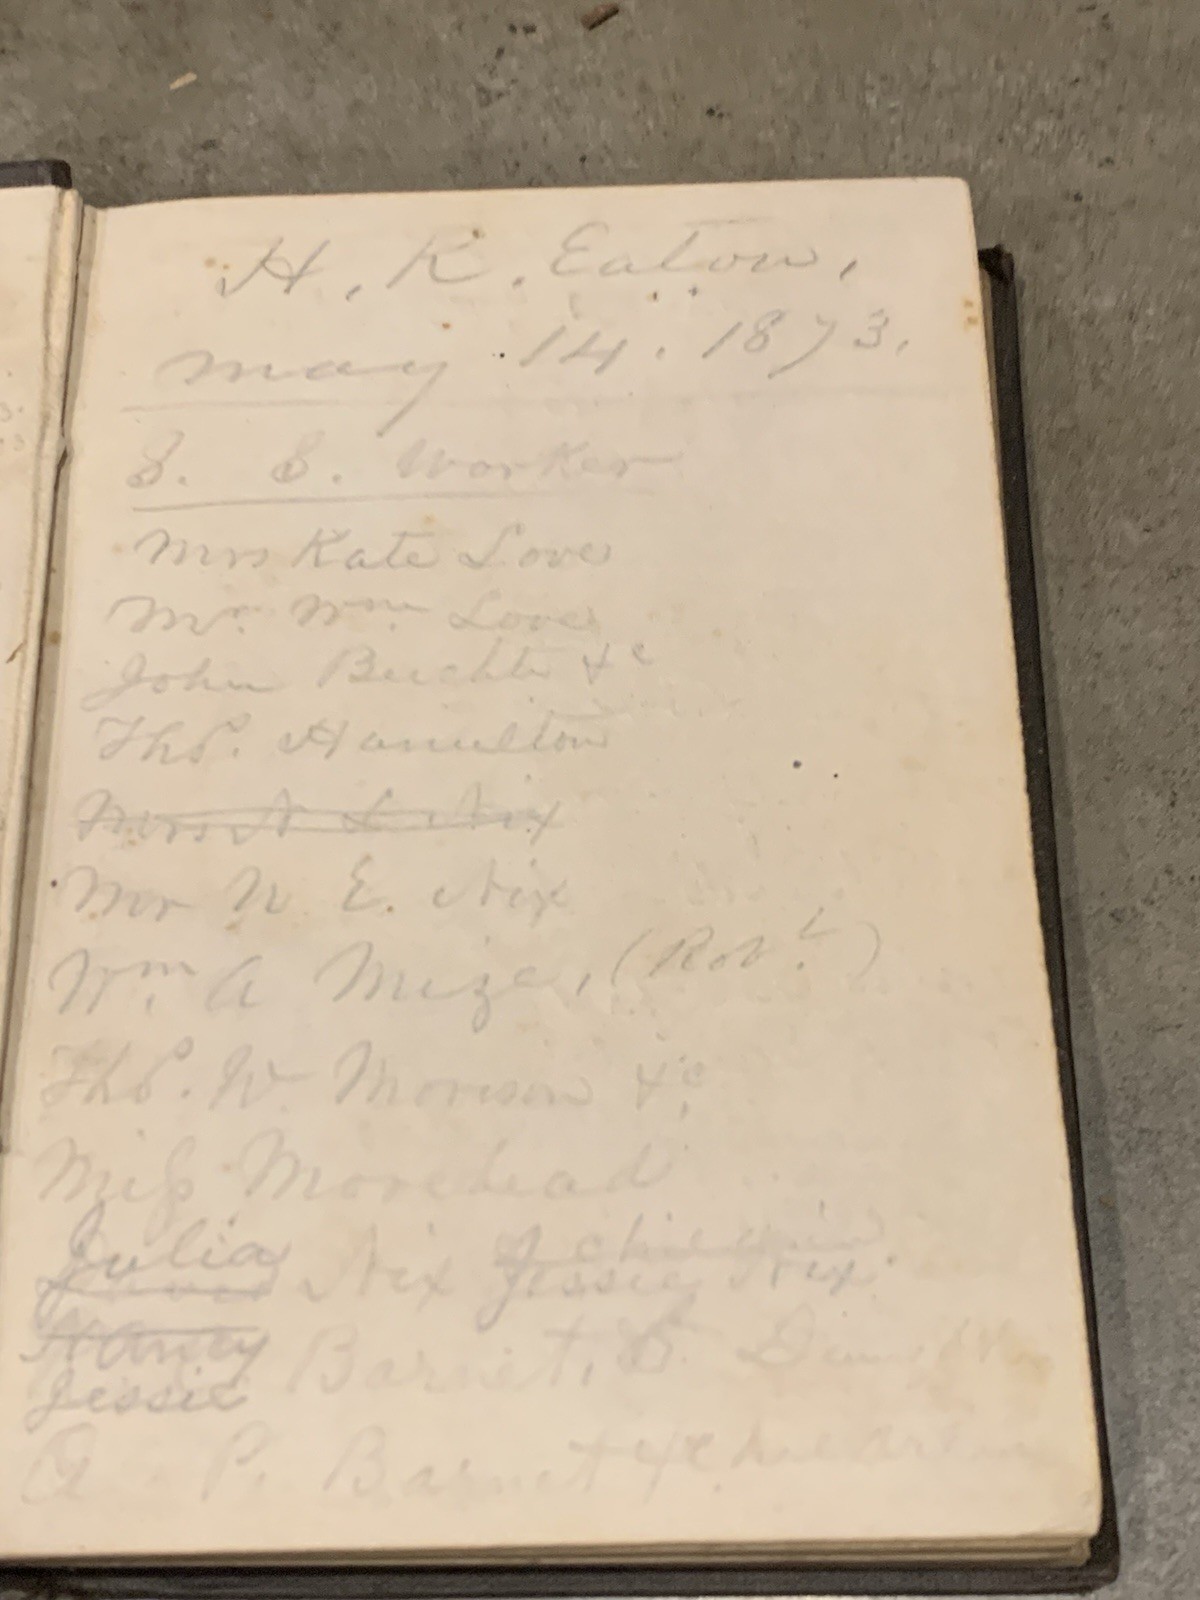 H. K. Eaton,
May 14. 1873.
S. S. Worker
Mrs Kate Love
Mr. Wm. Love
John &c
Thos. Hamilton
Mrs Nix
Mr N E. Nix
Wm. A Mize, (Robt.)
Thos. W. Morison &c
Miss Morehead
Julia
Nix Jessie Nix
Nancy
Jessie Barnet,
P. Barnet &